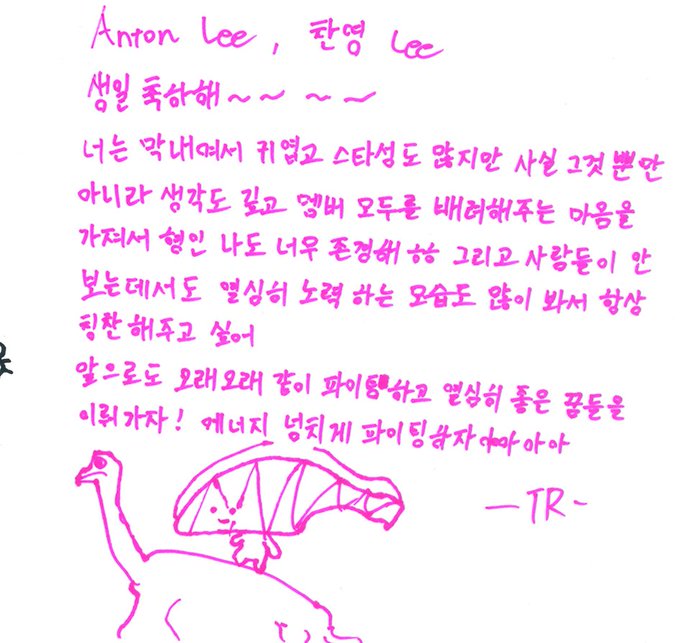 Anton Lee, 찬영 Lee
생일 축하해~~ ~~
너는 막내여서 귀엽고 스타성도 많지만 사실 그것 뿐만
아니라 생각도 깊고 멤버 모두를 배려해주는 마음을
가져서 형인 나도 너무 존경해ㅎㅎ 그리고 사람들이 안
보는데서도 열심히 노력 하는 모습도 많이 봐서 항상
칭찬해주고 싶어
앞으로도 오래오래 같이 파이팅하고 열심히 좋은 꿈들을
이뤄가자! 에너지 넘치게 파이팅하자 아아
-TR-